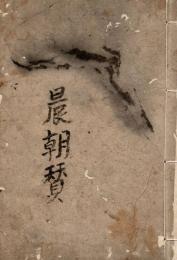 晨朝賛